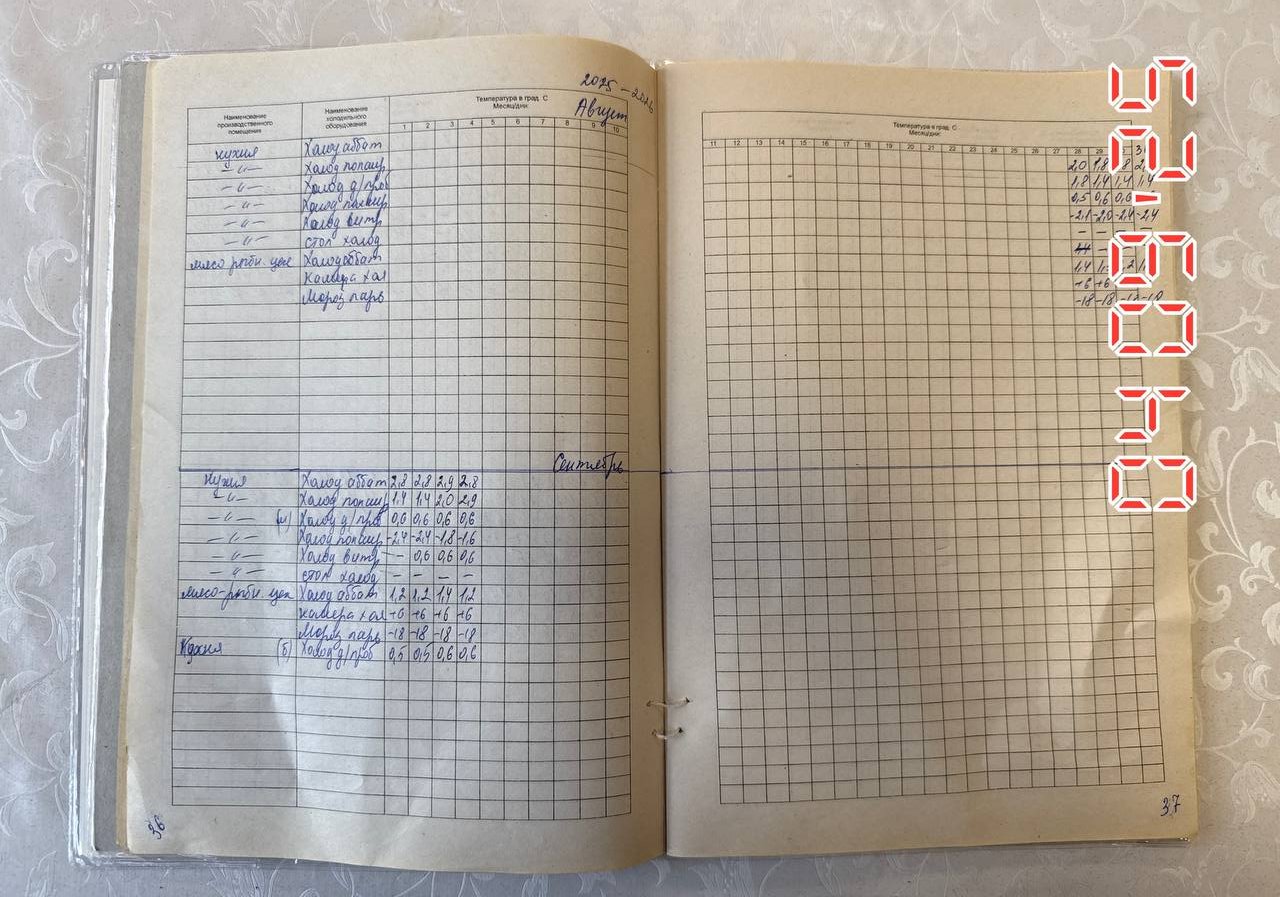 2025 - 2026
Август
Наименование производственного помещения
Наименование холодильного оборудования
Температура в град. С
Месяц/дни:
1 2 3 4 5 6 7 8 9 10
кухня Холод аббат
-"- Холод попаир
-"- Холод д/проб
-"- Холод попаир
-"- Холод витр
-"- стол холод
мясо рыбн. цех Холод аббат
Камера хол
Мороз ларь
Сентябрь
Кухня Холод аббат 2,8 2,8 2,9 2,8
-"- Холод попаир 1,4 1,4 2,0 2,9
-"- (м) Холод д/проб 0,6 0,6 0,6 0,6
-"- Холод попаир -2,4 -2,4 -1,8 -1,6
-"- Холод витр - 0,6 0,6 0,6
-"- стол холод - - - -
мясо-рыбн. цех Холод аббат 1,2 1,2 1,4 1,2
камера хол +6 +6 +6 +6
Мороз ларь -18 -18 -18 -18
Кухня (б) Холод д/проб 0,5 0,5 0,6 0,6
36
Температура в град. С
Месяц/дни:
11 12 13 14 15 16 17 18 19 20 21 22 23 24 25 26 27 28 29
2,0 1,8
1,8 1,4 1,4 1,4
0,5 0,6
-2,1 -2,0 -2,4 -2,4
- - -
1,4
+6 +6
-18 -18
37